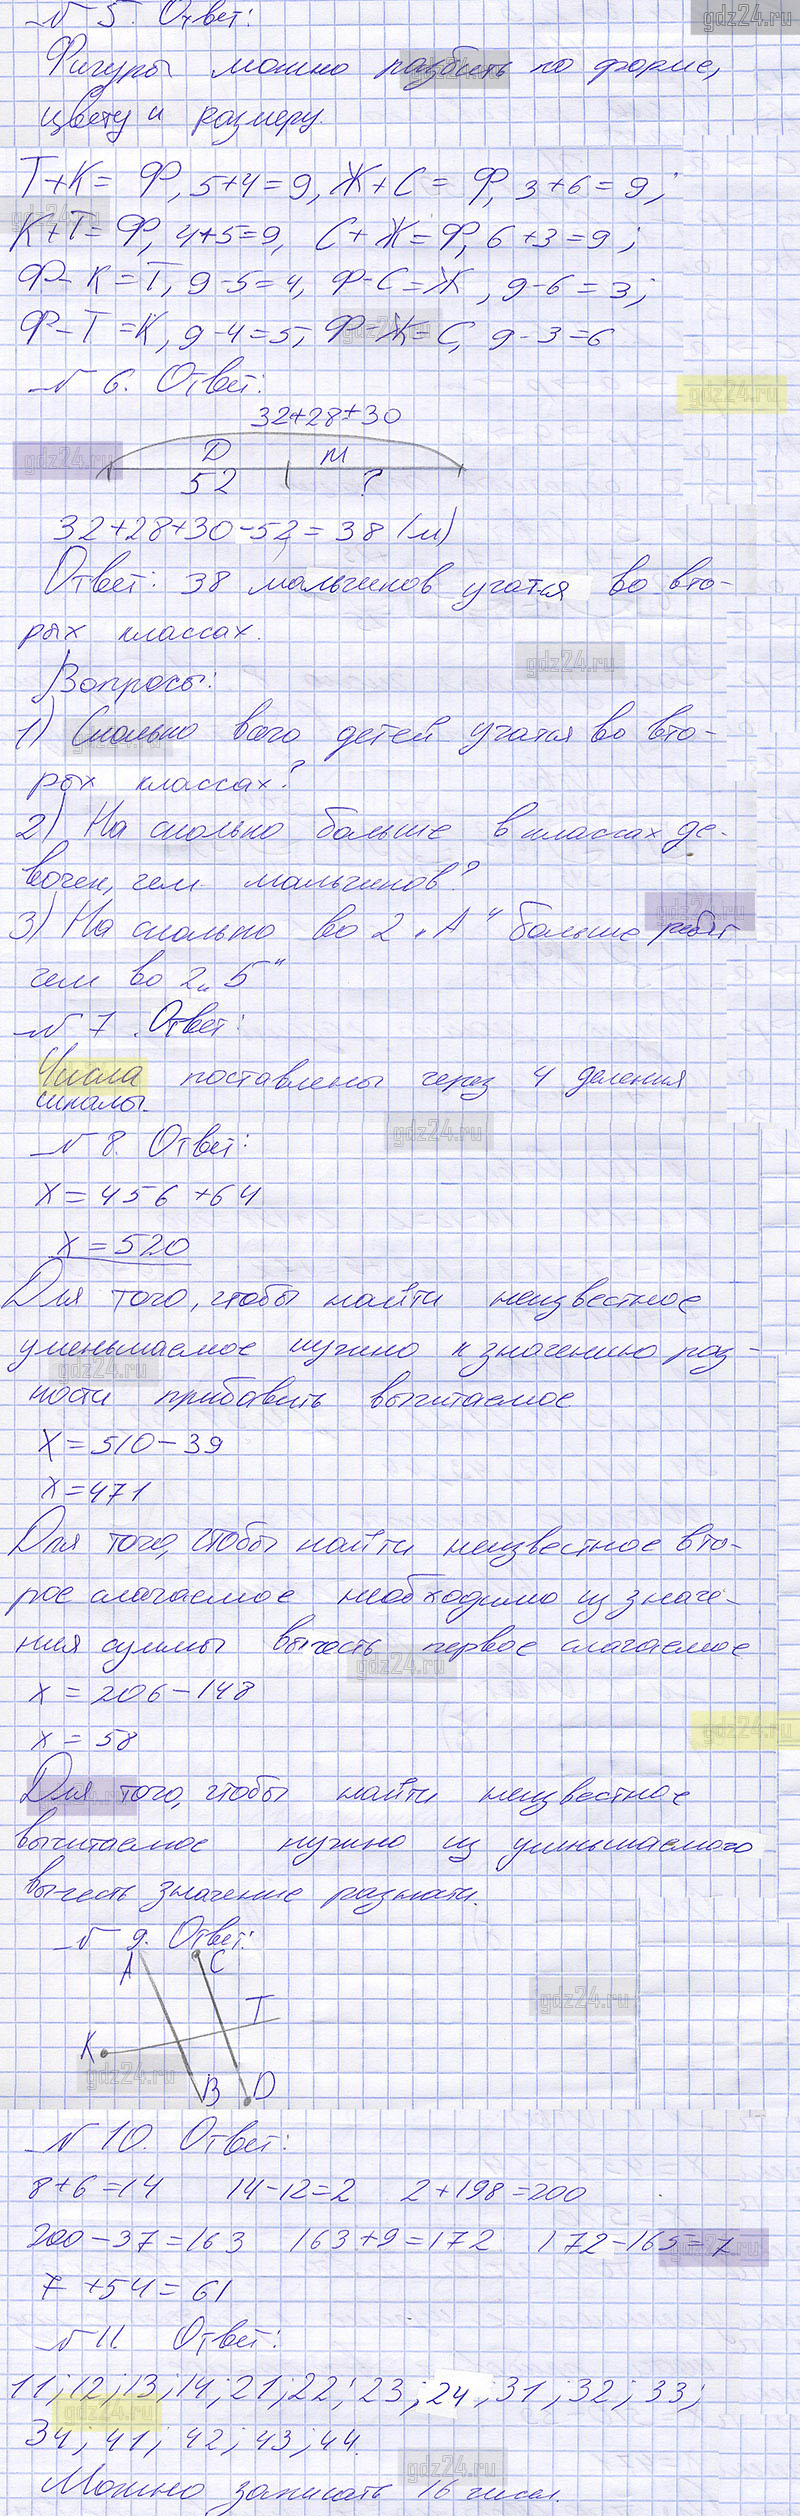 № 5. Ответ:
Фигуры можно разбить по форме,
цвету и размеру.
Т+К= Ф, 5+4=9, Ж+С= Ф, 3+6=9;
К+Т=Ф, 4+5=9, С+Ж=Ф, 6+3=9;
Ф-К=Т, 9-5=4, Ф-С=Ж, 9-6=3;
Ф-Т=К, 9-4=5, Ф-Ж=С, 9-3=6
№ 6. Ответ:
32+28+30
D м
52 ?
32+28+30-52=38 (м)
Ответ: 38 мальчиков учатся во вто-
рых классах.
Вопросы:
1) Сколько всего детей учатся во вто-
рых классах?
2) На сколько больше в классах де-
вочек, чем мальчиков?
3) На сколько во 2 „А" больше ребят
чем во 2 „Б"
№ 7. Ответ:
Числа поставлены через 4 деления
шкалы.
№ 8. Ответ:
х=456+64
х=520
Для того, чтобы найти неизвестное
уменьшаемое нужно к значению раз-
ности прибавить вычитаемое
х=510-39
х=471
Для того, чтобы найти неизвестное вто-
рое слагаемое необходимо из значе-
ния суммы вычесть первое слагаемое
х=206-148
х=58
Для того, чтобы найти неизвестное
вычитаемое нужно из уменьшаемого
вычесть значение разности.
№ 9. Ответ:
A C
T
K
B D
№ 10. Ответ:
8+6=14 14-12=2 2+198=200
200-37=163 163+9=172 172-165=7
7+54=61
№ 11. Ответ:
11; 12; 13; 14; 21; 22; 23; 24; 31; 32; 33;
34; 41; 42; 43; 44.
Можно записать 16 чисел.
gdz24.ru